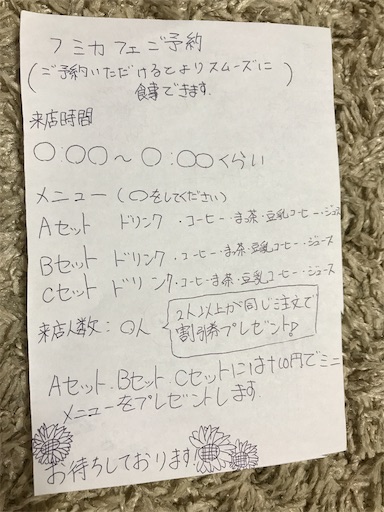 フミカフェご予約
(ご予約いただけるとよりスムーズに
食事できます。)
来店時間
〇:〇〇～〇:〇〇くらい
メニュー(〇をしてください)
Aセット ドリンク ・コーヒー・まっ茶・豆乳コーヒー・ジュース
Bセット ドリンク ・コーヒー・まっ茶・豆乳コーヒー・ジュース
Cセット ドリンク ・コーヒー・まっ茶・豆乳コーヒー・ジュース
来店人数:〇人
2人以上が同じ注文で
割引券プレゼント♪
Aセット.Bセット.Cセットには+100円でミニ
メニューをプレゼントします。
お待ちしております!